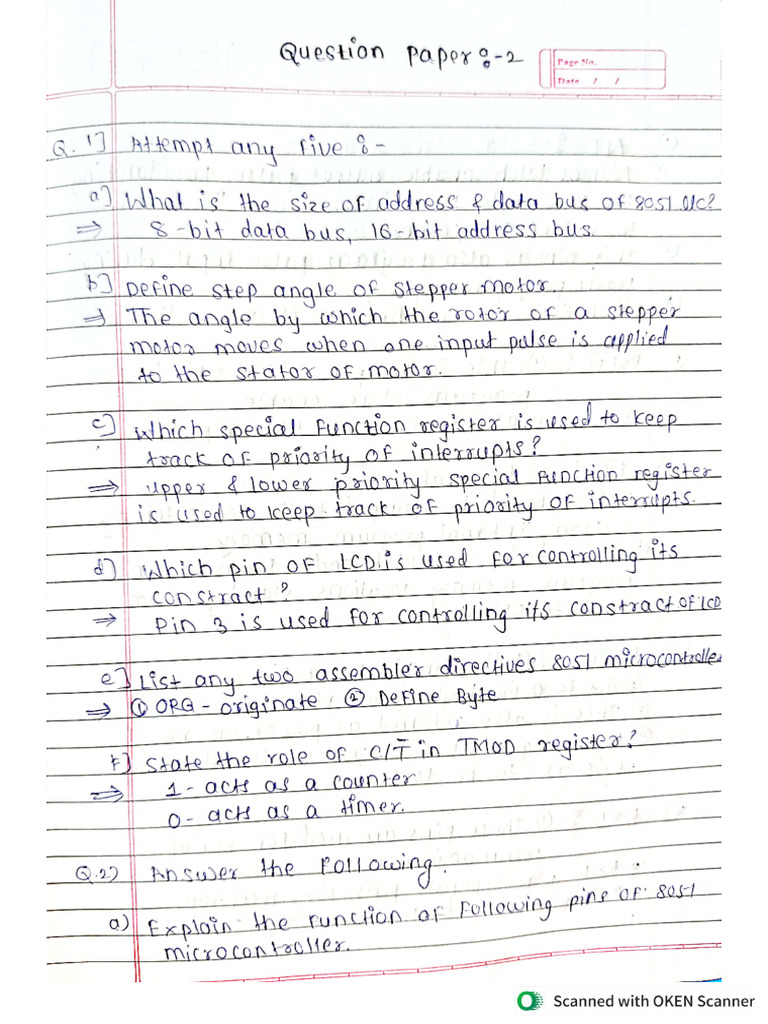 Question Paper :- 2
Page No.
Date / /
Q. 1] Attempt any five :-
a] What is the size of address & data bus of 8051 uc?
⇒ 8-bit data bus, 16-bit address bus.
b] Define step angle of stepper motor.
⇒ The angle by which the rotor of a stepper
motor moves when one input pulse is applied
to the stator of motor.
c] Which special function register is used to keep
track of priority of interrupts?
⇒ upper & lower priority special function register
is used to keep track of priority of interrupts.
d) Which pin of LCD is used for controlling its
constract?
⇒ Pin 3 is used for controlling its constract of LCD
e] List any two assembler directives 8051 microcontroller
⇒ ① ORG - originate ② Define Byte
f] State the role of C/T̅ in TMOD register?
⇒ 1 - acts as a counter
0 - acts as a timer.
Q.2) Answer the following.
a) Explain the function of following pins of 8051
microcontroller.
Scanned with OKEN Scanner